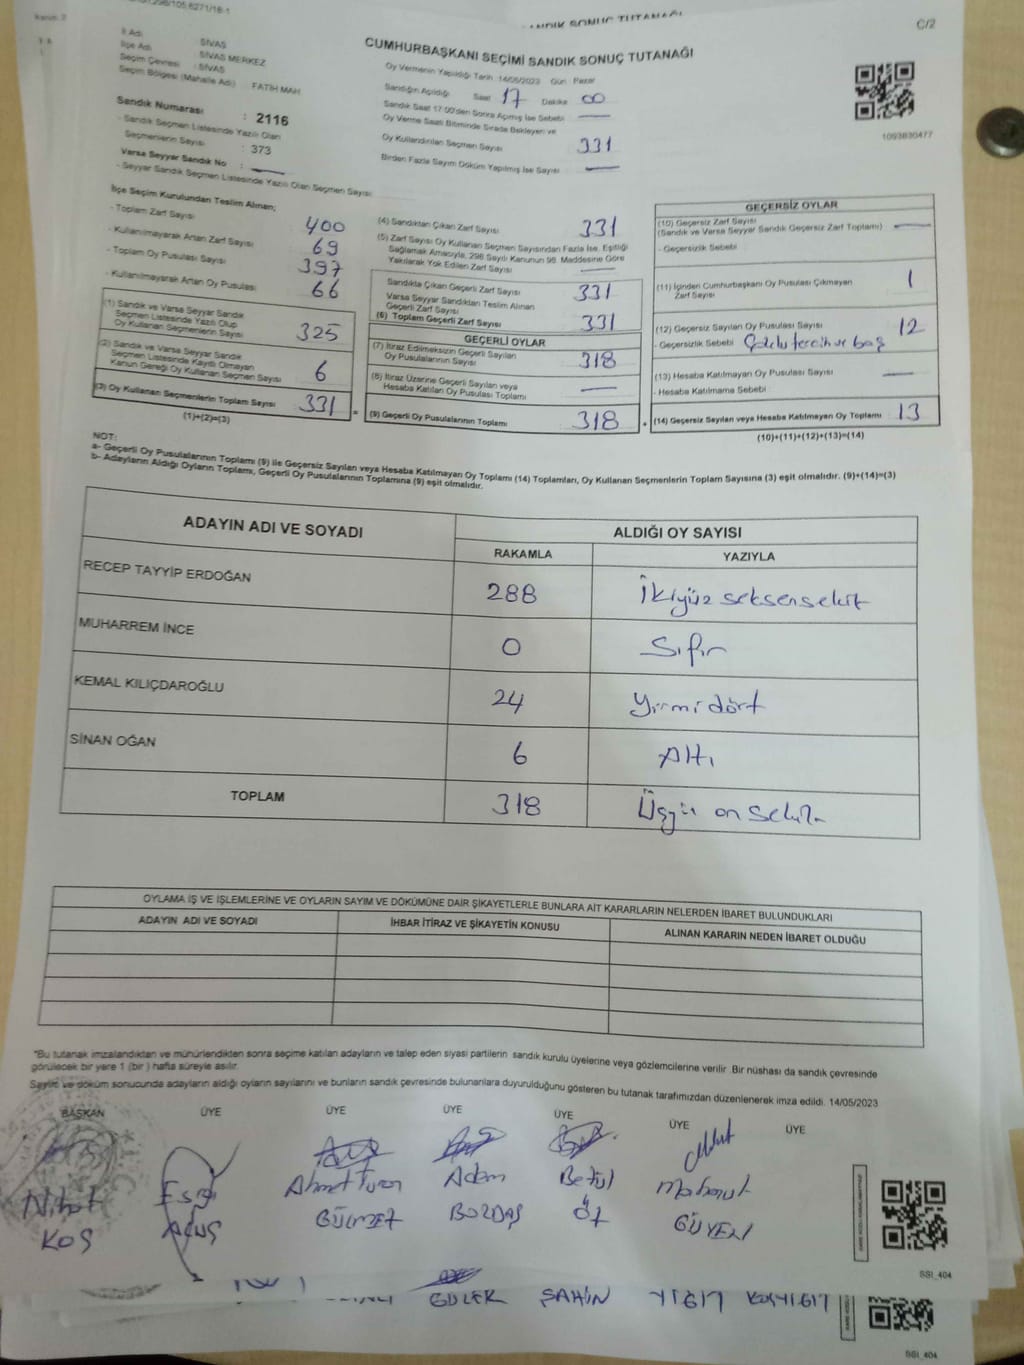 SANDIK SONUÇ TUTANAĞI
C/2
CUMHURBAŞKANI SEÇİMİ SANDIK SONUÇ TUTANAĞI
İl Adı : SİVAS
İlçe Adı : SİVAS MERKEZ
Seçim Çevresi : SİVAS
Seçim Bölgesi (Mahalle Adı) : FATİH MAH
Sandık Numarası : 2116
- Sandık Seçmen Listesinde Yazılı Olan
Seçmenlerin Sayısı : 373
Varsa Seyyar Sandık No :
- Seyyar Sandık Seçmen Listesinde Yazılı Olan Seçmen Sayısı
Oy Vermenin Yapıldığı Tarih 14/05/2023 Gün : Pazar
Sandığın Açıldığı Saat 17 Dakika 00
Sandık Saat 17:00'den Sonra Açılmış İse Sebebi
Oy Verme Saati Bitiminde Sırada Bekleyen ve
Oy Kullandırılan Seçmen Sayısı 331
Birden Fazla Sayım Döküm Yapılmış İse Sayısı
1093830477
İlçe Seçim Kurulundan Teslim Alınan;
- Toplam Zarf Sayısı 400
- Kullanılmayarak Artan Zarf Sayısı 69
- Toplam Oy Pusulası Sayısı 397
- Kullanılmayarak Artan Oy Pusulası 66
(1) Sandık ve Varsa Seyyar Sandık
Seçmen Listesinde Yazılı Olup
Oy Kullanan Seçmenlerin Sayısı 325
(2) Sandık ve Varsa Seyyar Sandık
Seçmen Listesinde Kayıtlı Olmayan
Kanun Gereği Oy Kullanan Seçmen Sayısı 6
(3) Oy Kullanan Seçmenlerin Toplam Sayısı 331 =
(1)+(2)=(3)
(4) Sandıktan Çıkan Zarf Sayısı 331
(5) Zarf Sayısı Oy Kullanan Seçmen Sayısından Fazla İse, Eşitliği
Sağlamak Amacıyla, 298 Sayılı Kanunun 98. Maddesine Göre
Yakılarak Yok Edilen Zarf Sayısı
Sandıkta Çıkan Geçerli Zarf Sayısı 331
Varsa Seyyar Sandıktan Teslim Alınan
Geçerli Zarf Sayısı
(6) Toplam Geçerli Zarf Sayısı 331
GEÇERLİ OYLAR
(7) İtiraz Edilmeksizin Geçerli Sayılan
Oy Pusulalarının Sayısı 318
(8) İtiraz Üzerine Geçerli Sayılan veya
Hesaba Katılan Oy Pusulası Toplamı
(9) Geçerli Oy Pusulalarının Toplamı 318 +
GEÇERSİZ OYLAR
(10) Geçersiz Zarf Sayısı
(Sandık ve Varsa Seyyar Sandık Geçersiz Zarf Toplamı)
- Geçersizlik Sebebi
(11) İçinden Cumhurbaşkanı Oy Pusulası Çıkmayan
Zarf Sayısı 1
(12) Geçersiz Sayılan Oy Pusulası Sayısı 12
- Geçersizlik Sebebi Çoklu tercih ve boş
(13) Hesaba Katılmayan Oy Pusulası Sayısı
- Hesaba Katılmama Sebebi
(14) Geçersiz Sayılan veya Hesaba Katılmayan Oy Toplamı 13
(10)+(11)+(12)+(13)=(14)
NOT:
a- Geçerli Oy Pusulalarının Toplamı (9) ile Geçersiz Sayılan veya Hesaba Katılmayan Oy Toplamı (14) Toplamları, Oy Kullanan Seçmenlerin Toplam Sayısına (3) eşit olmalıdır. (9)+(14)=(3)
b- Adayların Aldığı Oyların Toplamı, Geçerli Oy Pusulalarının Toplamına (9) eşit olmalıdır.
ADAYIN ADI VE SOYADI ALDIĞI OY SAYISI
RAKAMLA YAZIYLA
RECEP TAYYİP ERDOĞAN 288 İkiyüz seksen sekiz
MUHARREM İNCE 0 Sıfır
KEMAL KILIÇDAROĞLU 24 Yirmi dört
SİNAN OĞAN 6 Altı
TOPLAM 318 Üçyüz on sekiz
OYLAMA İŞ VE İŞLEMLERİNE VE OYLARIN SAYIM VE DÖKÜMÜNE DAİR ŞİKAYETLERLE BUNLARA AİT KARARLARIN NELERDEN İBARET BULUNDUKLARI
ADAYIN ADI VE SOYADI İHBAR İTİRAZ VE ŞİKAYETİN KONUSU ALINAN KARARIN NEDEN İBARET OLDUĞU
*Bu tutanak imzalandıktan ve mühürlendikten sonra seçime katılan adayların ve talep eden siyasi partilerin sandık kurulu üyelerine veya gözlemcilerine verilir .Bir nüshası da sandık çevresinde
görülecek bir yere 1 (bir ) hafta süreyle asılır.
Sayım ve döküm sonucunda adayların aldığı oyların sayılarını ve bunların sandık çevresinde bulunanlara duyurulduğunu gösteren bu tutanak tarafımızdan düzenlenerek imza edildi. 14/05/2023
BAŞKAN ÜYE ÜYE ÜYE ÜYE ÜYE ÜYE
Nihat Ahmet Turan Adem Betül Mahmut
KOÇ BOZDAŞ ÖZ GÜVEN
SSI_404
GÜLER ŞAHİN YİĞİT
SSI_404